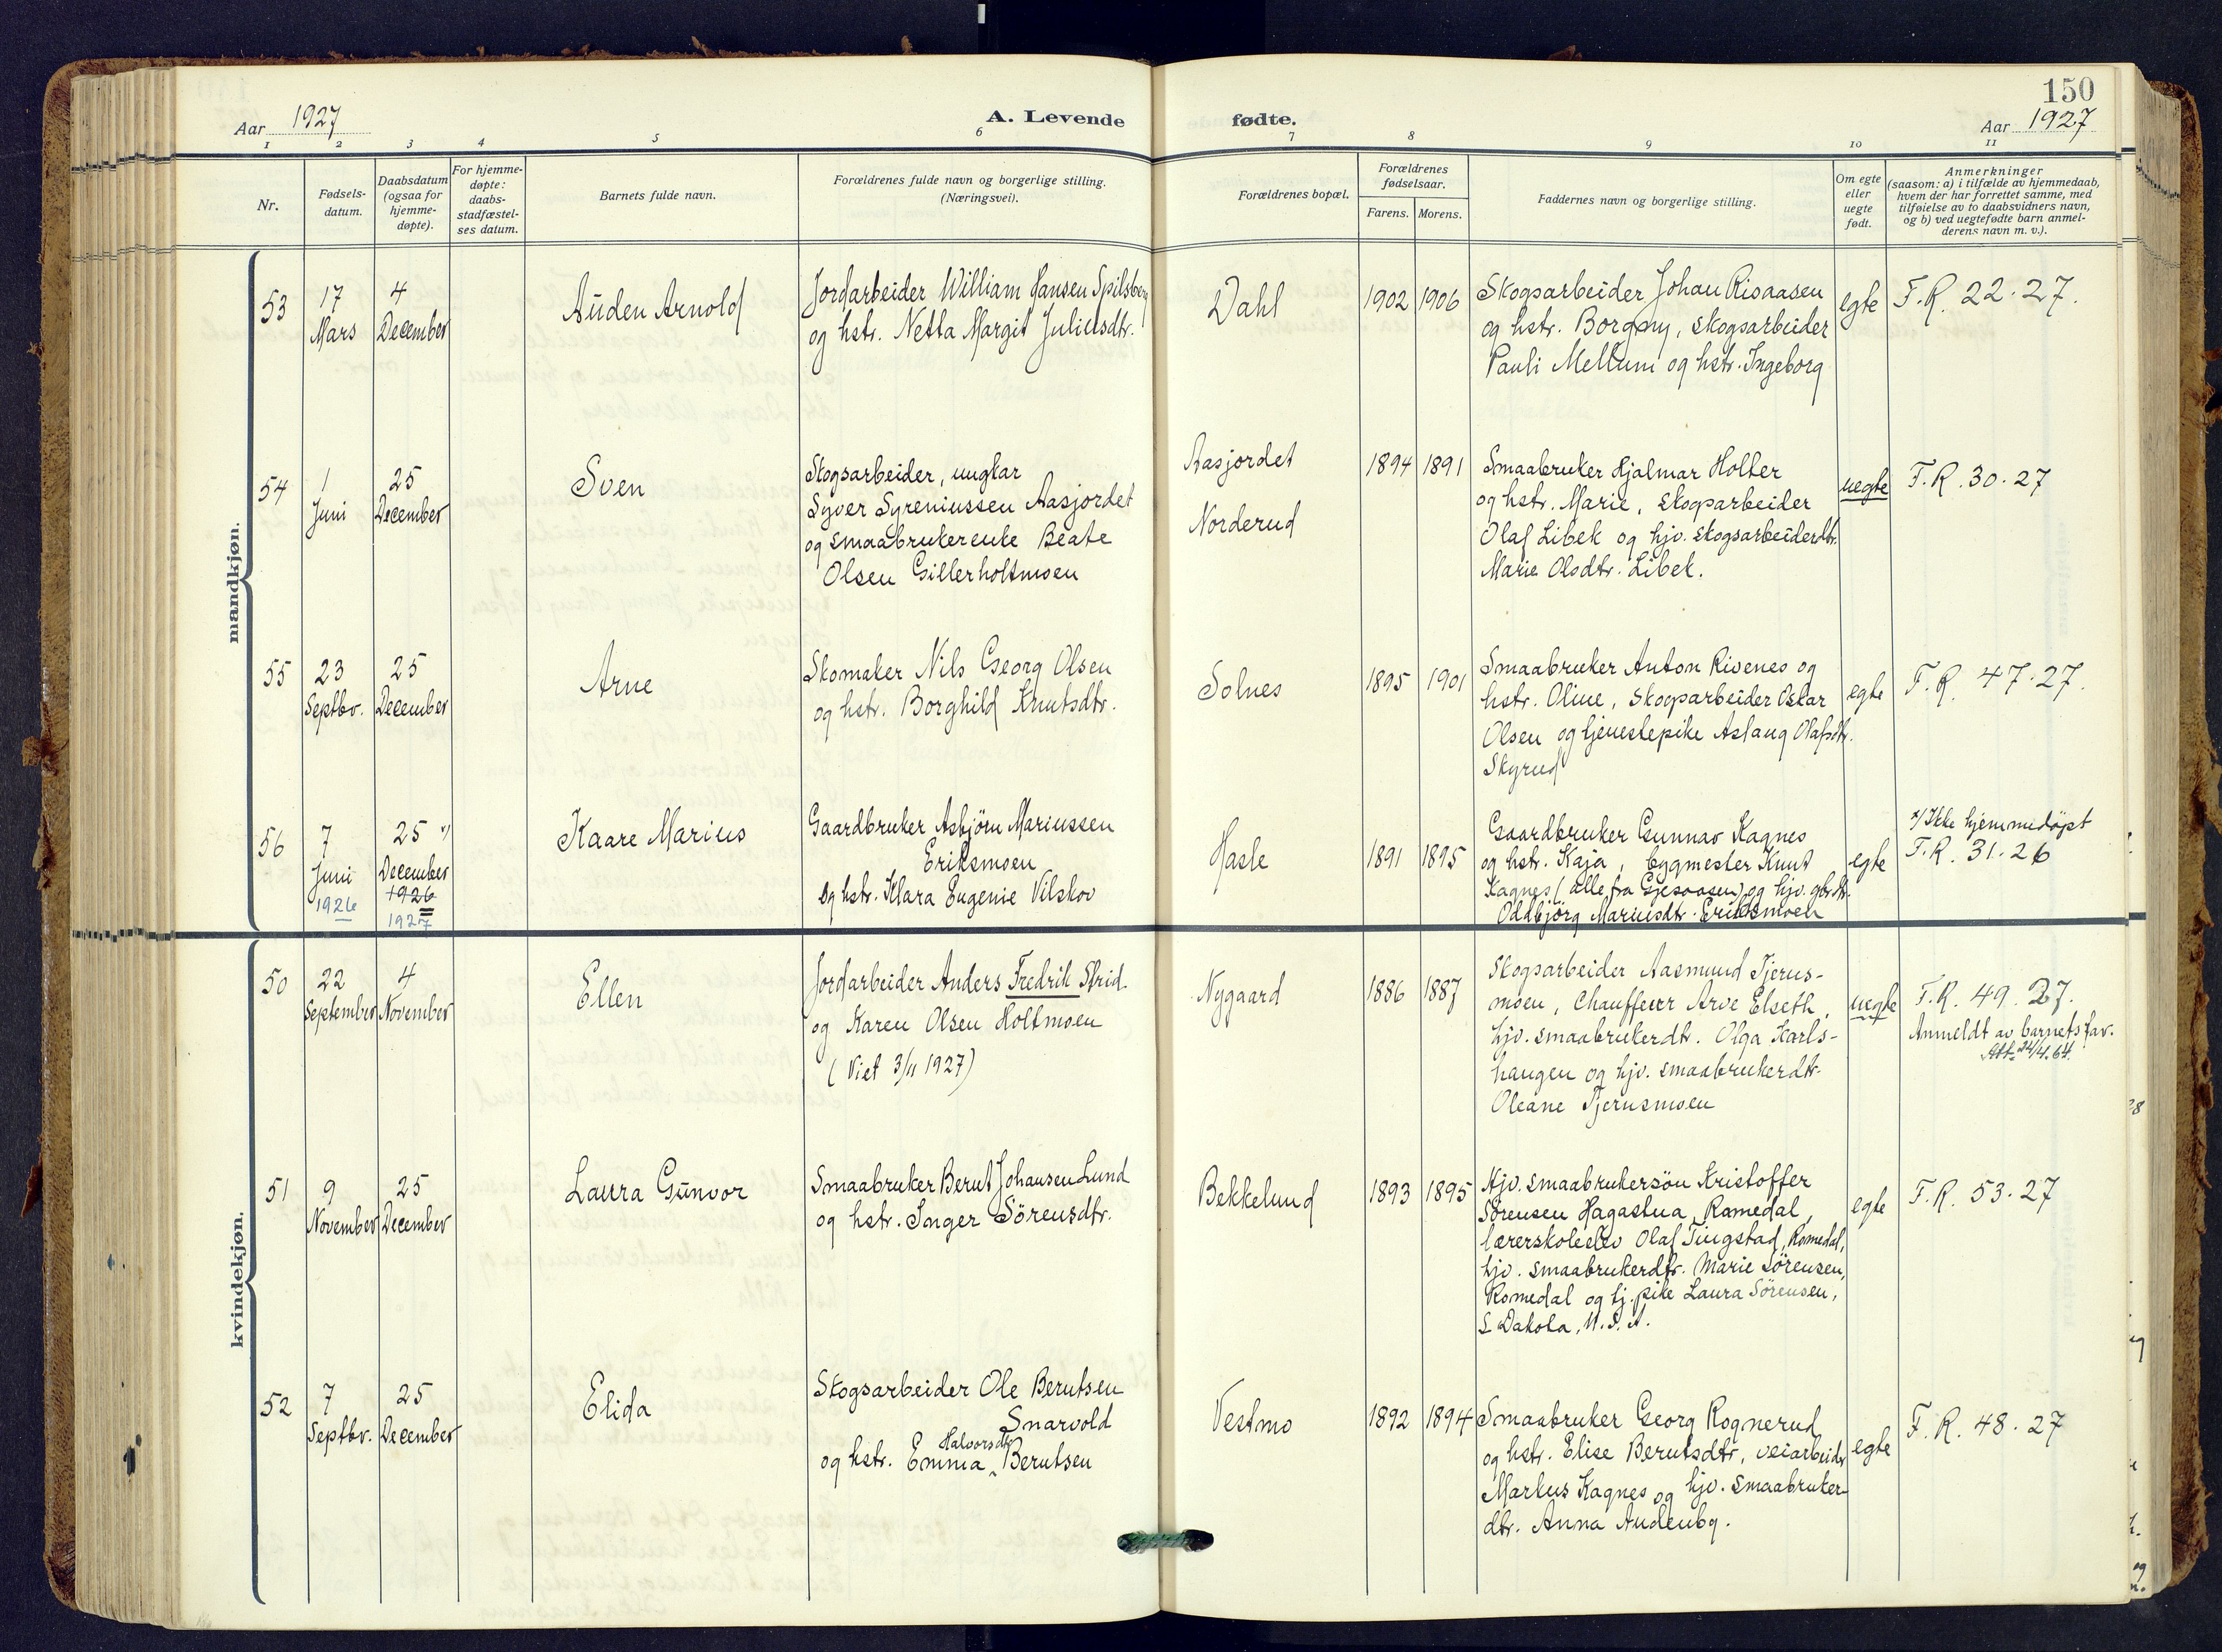 150
Aar 1927
A. Levende fødte.
Aar 1927
1 2 3 4 5 6 7 8 9 10 11
Nr.
Fødsels-
datum.
Daabsdatum
(ogsaa for
hjemme-
døpte).
For hjemme-
døpte:
daabs-
stadfæstel-
ses datum.
Barnets fulde navn.
Forældrenes fulde navn og borgerlige stilling.
(Næringsvei).
Forældrenes bopæl.
Forældrenes
fødselsaar.
Farens. Morens.
Faddernes navn og borgerlige stilling.
Om egte
eller
uegte
født.
Anmerkninger
(saasom: a) i tilfælde av hjemmedaab,
hvem der har forrettet samme, med
tilføielse av to daabsvidners navn,
og b) ved uegtefødte barn anmel-
derens navn m. v.).
mandkjøn.
53
17
Mars
4
December
Auden Arnold
Jordarbeider William Hansen Spilsberg
og hstr. Netta Margit Juliusdtr.
Dahl
1902 1906
Skogsarbeider Johan Risaasen
og hstr. Borgny, skogsarbeider
Pauli Mellum og hstr. Ingeborg
egte
F.R. 22.27.
54
1
Juni
25
December
Sven
Skogsarbeider, ungkar
Syver Syreniussen Aasjordet
og smaabrukerenke Beate
Olsen Gillerholtmoen
Aasjordet
Norderud
1894 1891
Smaabruker Hjalmar Holter
og hstr. Marie, skogsarbeider
Olaf Libek og hjv. skogsarbeiderdtr.
Marie Olsdtr. Libek.
uegte
F.R. 30.27
55
23
Septbr.
25
December
Arne
Skomaker Nils Georg Olsen
og hstr. Borghild Knutsdtr.
Solnes
1895 1901
Smaabruker Anton Rivenes og
hstr. Oline, skogsarbeider Oskar
Olsen og tjenestepike Aslaug Olafsdtr.
Skyrud
egte
F.R. 47.27.
56
7
Juni
1926
25 x)
December
1926
1927
Kaare Marius
Gaardbruker Asbjörn Mariussen
Eriksmoen
og hstr. Klara Eugenie Vilskov
Hasle
1891 1895
Gaardbruker Gunnar Kagnes
og hstr. Kaja, bygmester Knut
Kagnes (alle fra Gjesaasen) og hjv. gbr.dtr.
Oddbjörg Mariusdtr. Eriksmoen
egte
x/ Ikke hjemmedöpt
F.R. 31.26
kvindekjøn.
50
22
September
4
November
Ellen
Jordarbeider Anders Fredrik Strid
og Karen Olsen Holtmoen
(Viet 3/11 1927)
Nygaard
1886 1887
Skogsarbeider Aasmund Tjerus-
moen, Chauffeur Arve Elseth,
hjv. smaabrukerdtr. Olga Karls-
haugen og hjv. smaabrukerdtr.
Oleane Tjerusmoen
uegte
F.R. 49.27.
Anmeldt av barnets far.
Att. 24/4.64.
51
9
November
25
December
Laura Gunvor
Smaabruker Bernt Johansen Lund
og hstr. Inger Sörensdtr.
Bekkelund
1893 1895
Hjv. smaabrukersön Kristoffer
Sörensen Hagastua, Romedal,
lærerskoleelev Olaf Tingstad, Romedal,
hjv. smaabrukerdtr. Marie Sörensen,
Romedal og tj.pike Laura Sörensen,
S Dakota, U.S.A.
egte
F.R. 53.27
52
7
Septbr.
25
December
Elida
Skogsarbeider Ole Berntsen
Snarvold
og hstr. Emma Halvorsdtr. Berntsen
Vestmo
1892 1894
Smaabruker Georg Rognerud
og hstr. Elise Berntsdtr, veiarbeider
Markus Kagnes og hjv. smaabruker-
dtr. Anna Audenbg.
egte
F.R. 48.27